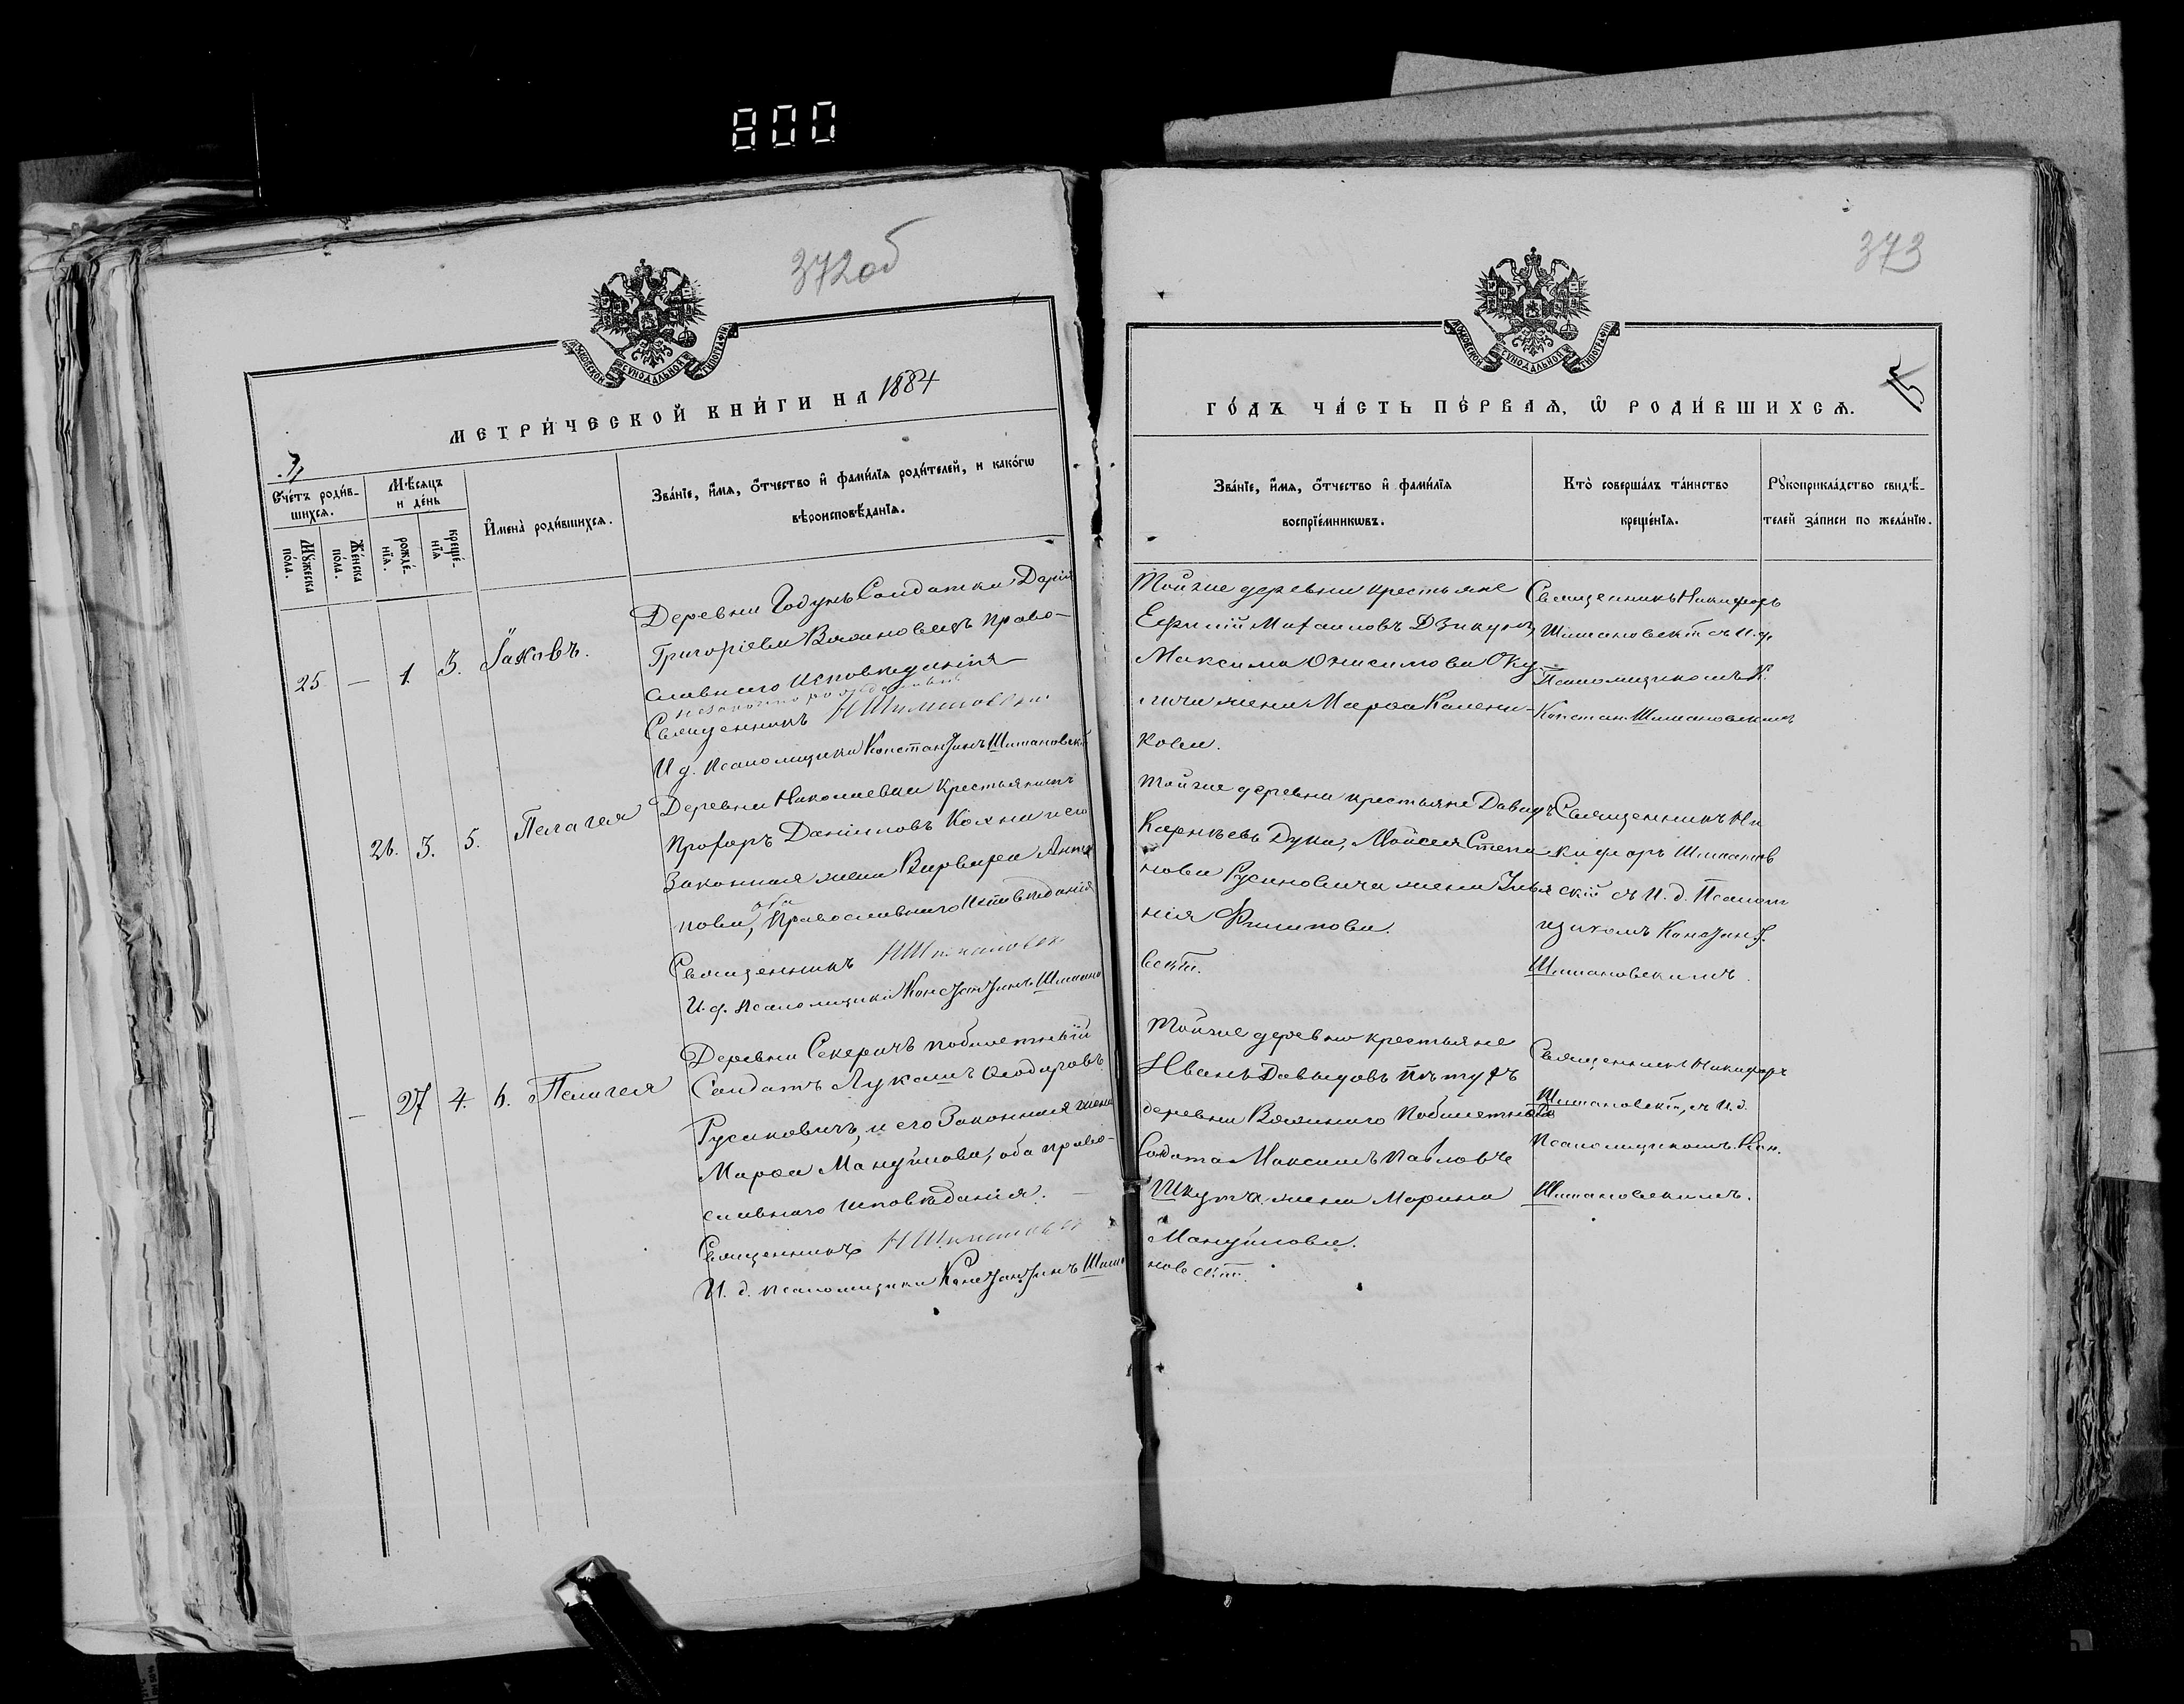 800
372об
МОСКОВСКОЙ СУНОДАЛЬНОЙ ТИПОГРАФІИ
МЕТРИ́ЧЕСКОЙ КНИ́ГИ НА 1884
Сче́тъ роди́в-
шихсѧ.
Мꙋ́жеска
по́ла.
Же́нска
по́ла.
Мѣ́сѧцъ
и де́нь
рожде́-
нїѧ.
креще́-
нїѧ
И҆мена̀ роди́вшихсѧ.
Зва́нїе, и҆́мѧ, ѻ҆́тчество и҆ фами́лїѧ роди́телей, и како́гѡ
вѣроисповѣ́данїѧ.
25 — 1. 3. Іаковъ.
Деревни Годунь Солдатка Дарія
Григоріева Право-
славнаго исповѣданія
незаконно
Священникъ Н Шимановскій
И д. псаломщика Константинъ Шимановскій
26. 3. 5. Пелагея
Деревни Николаевки крестьянинъ
Прохоръ Даніиловъ Кохна и его
Законная жена Варвара Анто
нова, оба Православнаго исповѣданія
Священникъ Н Шимановск
И. д. псаломщика Константинъ Шимано
— 27 4. 6. Пелагея
Деревни Секеричъ побилетный
Солдатъ Лукашъ Ѳеодоровъ
Русаковичъ, и его Законная жена
Марѳа Мануйлова, оба право-
славнаго исповѣданія. —
Священникъ Н Шимановск
И. д. псаломщика Константинъ Шима
373
МОСКОВСКОЙ СУНОДАЛЬНОЙ ТИПОГРАФІИ
15
ГО́ДЪ ЧА́СТЬ ПЕ́РВАѦ, Ѡ҆ РОДИ́ВШИХСѦ.
Зва́нїе, и҆́мѧ, ѻ҆́тчество и҆ фами́лїѧ
воспрїе́мникѡвъ.
Кто̀ соверша́лъ та́инство
креще́нїѧ.
Рꙋкоприкла́дство свидѣ́-
телей за́писи по жела́нїю.
Тойже деревни крестьяне
Ефимій Михаиловъ Дзикунъ,
Максима Онисимова Оку-
лича жена Марѳа Калени-
кова.
Священникъ Никифоръ
Шимановскій съ И. д.
Псаломщикомъ К.
Констан. Шимановскимъ
Тойже деревни крестьяне Давидъ
Карнѣевъ Дука, Мойсея Степа
нова Русиновича жена Улья
нія Филипова.
вскій.
Священникъ Ни
кифоръ Шиманов
скій съ И. д. Псалом
щикомъ Констант.
Шимановскимъ.
Тойже деревни крестьяне
Иванъ Давыдовъ Пѣтухъ
деревни побилетнаго
Солдата Максимъ Павловъ
Шкута жена Марина
Мануйлова.
новскій.
Священникъ Никифоръ
Шимановскій, съ И. д.
Псаломщикомъ Кон.
Шимановскимъ.